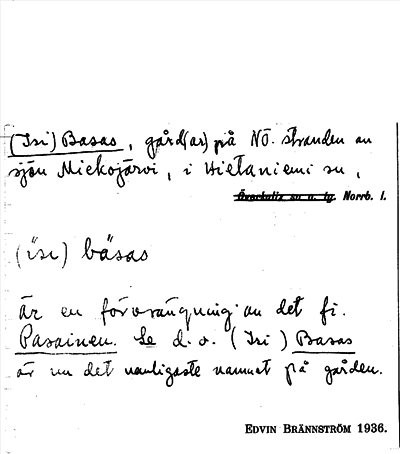 (Isi) Basas, gård(ar) på NÖ. stranden av
sjön Miekojärvi, i Hietaniemi sn,
Överkalix sn o. tg. Norrb. l.
(ísı) bäsas
är en förvrängning av det fi.
Pasainen. Se d. o. (Isi) Basas
är nu det vanligaste namnet på gården.
EDVIN BRÄNNSTRÖM 1936.